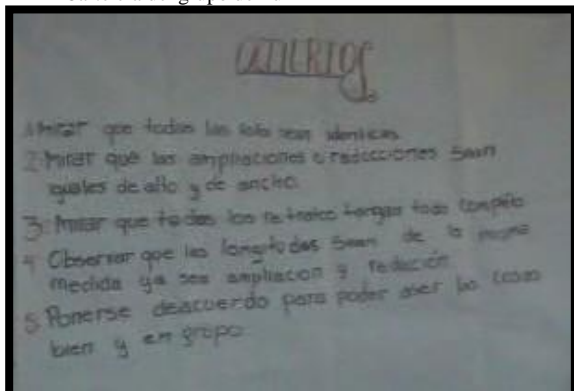 CRITERIOS
1. Mirar que todas las fotos sean identicas
2. Mirar que las ampliaciones o reducciones sean
iguales de alto y de ancho.
3. Mirar que todos los retratos tengan todo completo
4. Observar que las longitudes sean de la misma
medida ya sea ampliacion y reducción
5. Ponerse deacuerdo para poder aser las cosas
bien y en grupo